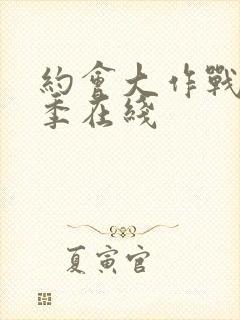 約會大作戰
季在綫
夏寅官